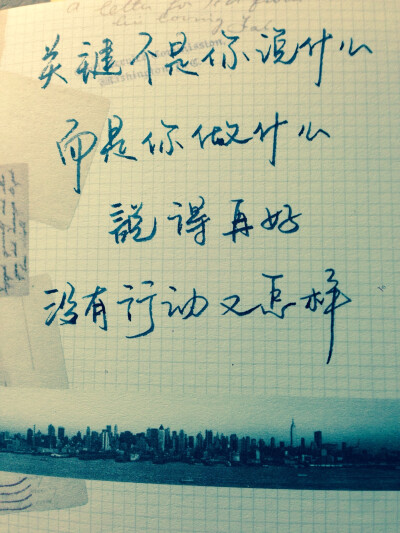 a letter for
in loving
关键不是你说什么
而是你做什么
説得再好
没有行动又怎样